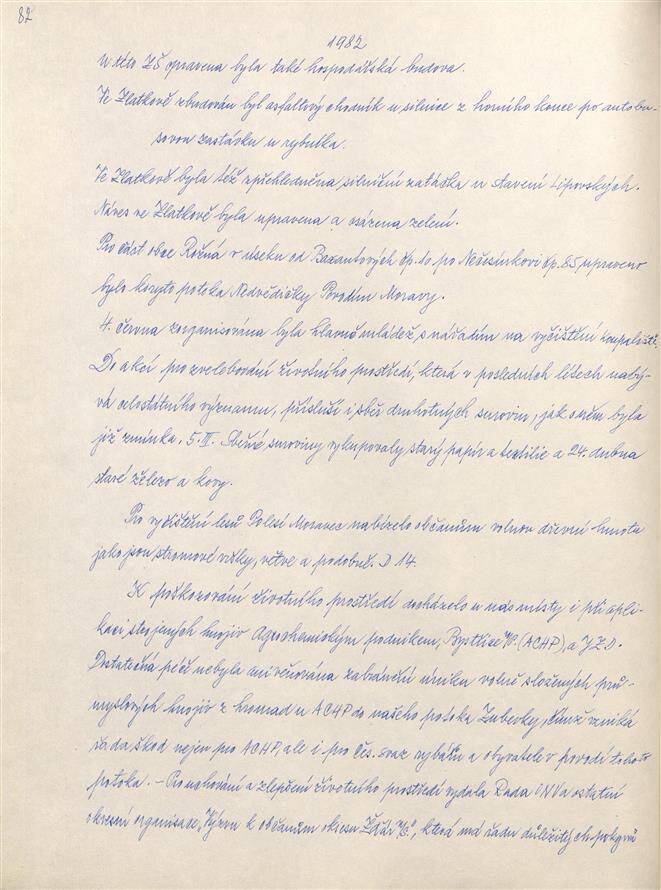 82
1982
U této ZŠ opravena byla také hospodářská budova.
Ve Zlatkově zbudován byl asfaltový chodník u silnice z horního konce po autobu-
sovou zastávku u rybníka.
Ve Zlatkově byla též zpřehledněna silniční zatáčka u stavení Lipovských.
Náves ve Zlatkově byla upravena a osázena zelení.
Pro část obce Rožná v úseku od Bazantových čp. 10 po Nečesánkovi čp. 85 upraveno
bylo koryto potoka Nedvědičky Povodím Moravy.
4. června zorganisována byla hlavně mládež, s nářadím na vyčištění koupaliště.
Do akcí pro zvelebování životního prostředí, která v posledních letech nabý-
vá celostátního významu, přísluší i sběr druhotných surovin, jak o něm byla
již zmínka. 5. III. Sběrné suroviny vykupovaly starý papír a textilie a 24. dubna
staré železo a kovy.
Pro vyčištění lesů Polesí Moravec nabízelo občanům volnou dřevní hmotu
jako jsou stromové vršky, větve a podobně. D 14.
K poškozování životního prostředí docházelo u nás místy i při apli-
kaci strojených hnojiv Agrochemickým podnikem, Bystřice n/P. (ACHP) a JZD.
Dostatečná péče nebyla ani věnována zabránění úniku volně složených prů-
myslových hnojiv z hromad u ACHP do našeho potoka Zuberky, čímž vzniká
řada škod nejen pro ACHP, ale i pro Čes. svaz rybářů a obyvatele v povodí tohoto
potoka. – Pro uchování a zlepšení životního prostředí vydala Rada ONV a ostatní
okresní organisace „Výzvu k občanům okresu Žďár n/S.", která má řadu důležitých pokynů